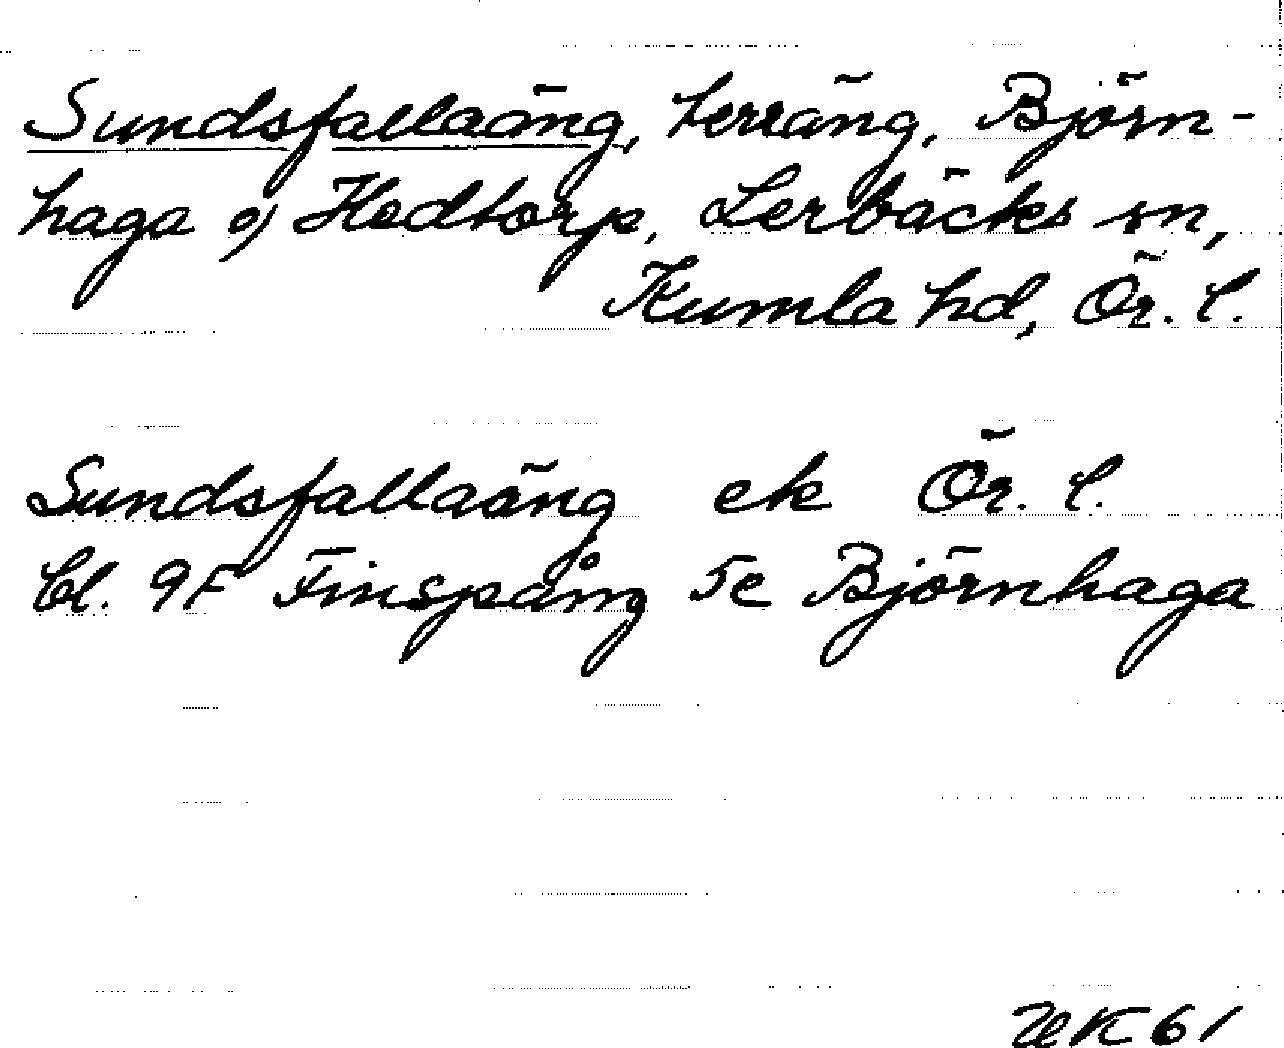 Sundsfallaäng, terräng, Björn-
haga o) Hedtorp, Lerbäcks sn,
Kumla hd, Ör. l.
Sundsfallaäng ek Ör. l.
bl. 9F Finspång 5e Björnhaga
UK 61